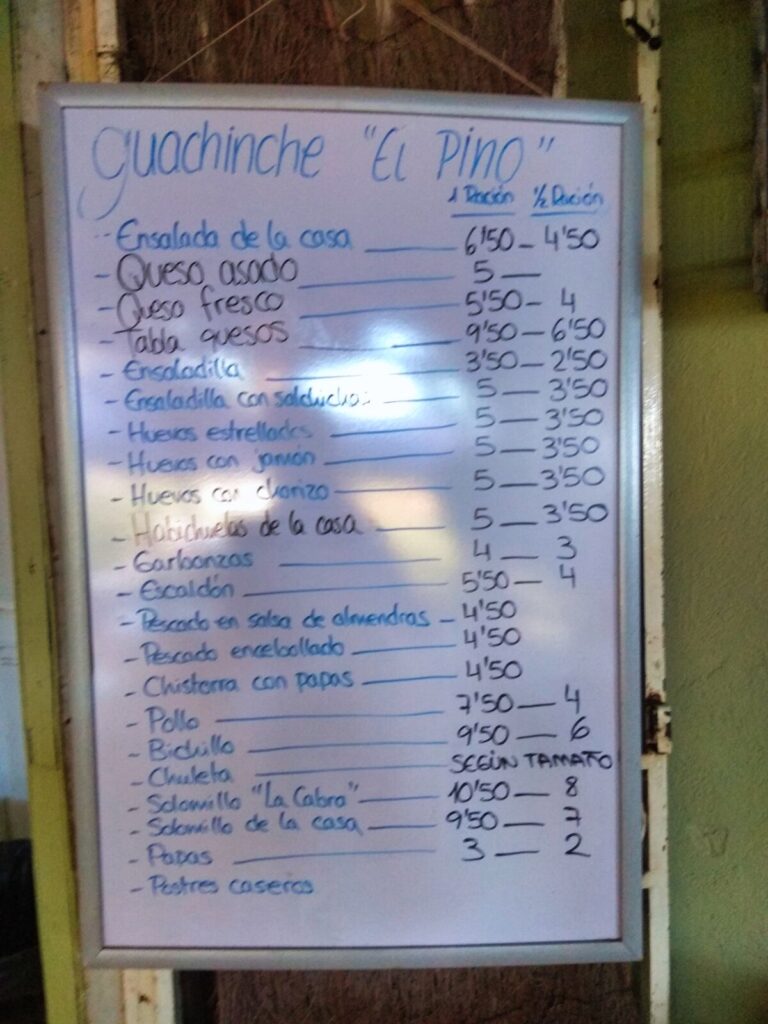 Guachinche "El Pino"
1 Ración ½ Ración
- Ensalada de la casa 6'50 - 4'50
- Queso asado 5 -
- Queso fresco 5'50 - 4
- Tabla quesos 9'50 - 6'50
- Ensaladilla 3'50 - 2'50
- Ensaladilla con salchichas 5 - 3'50
- Huevos estrellados 5 - 3'50
- Huevos con jamón 5 - 3'50
- Huevos con chorizo 5 - 3'50
- Habichuelas de la casa 5 - 3'50
- Garbanzas 4 - 3
- Escaldón 5'50 - 4
- Pescado en salsa de almendras - 4'50
- Pescado encebollado 4'50
- Chistorra con papas 4'50
- Pollo 7'50 - 4
- Bichillo 9'50 - 6
- Chuleta SEGÚN TAMAÑO
- Solomillo "La Cabra" 10'50 - 8
- Solomillo de la casa 9'50 - 7
- Papas 3 - 2
- Postres caseros